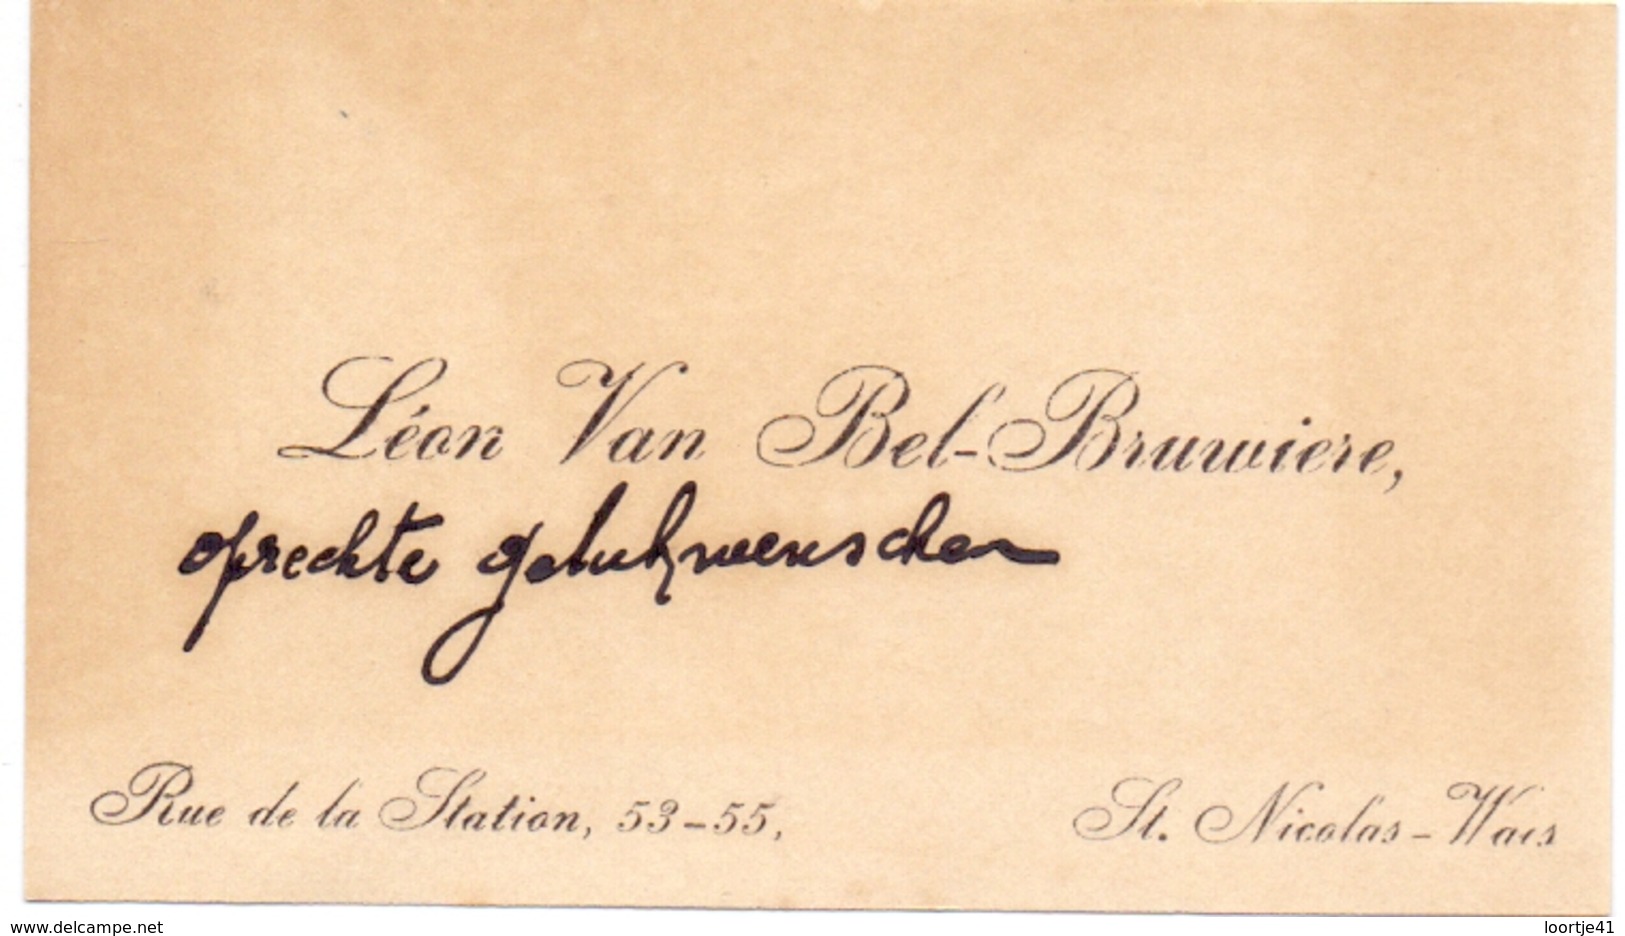 Léon Van Bel-Bruwiere,
oprechte gelukwenschen
Rue de la Station, 53-55,
St. Nicolas-Waes
www.delcampe.net
loortje41